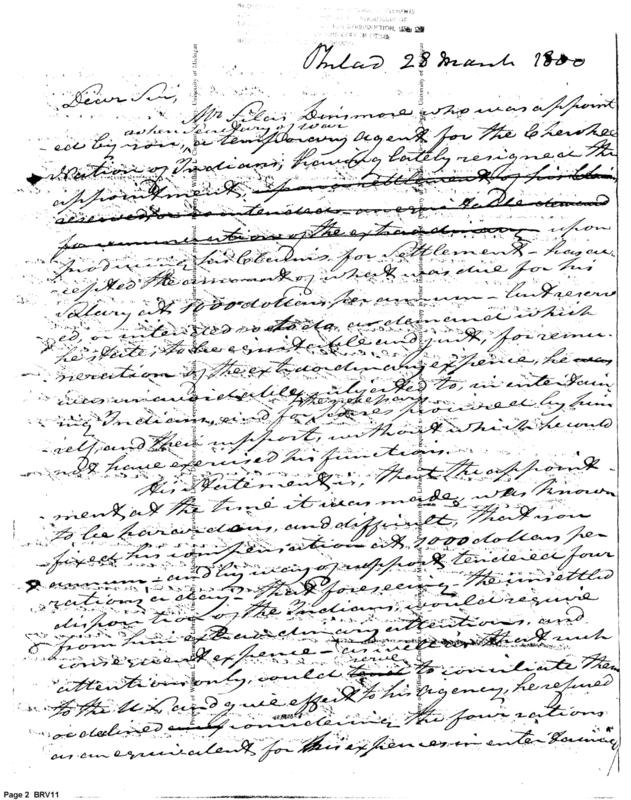 Philad 28 March 1800
Dear Sir,
Mr Silas Dinsmore who was appoint
when Secretary of war
ed by you, a temporary agent for the Cherokee
Nation of Indians, having lately resigned the
appointment, upon a settlement of his
for remuneration of the extraordinary upon
producing his Claims for Settlement - has ac
cepted the amount of what was due for his
Salary at 1000 dollars per annum - but reserv
ed, or intended so to do, a demand which
he states, to be equitable and just, for remu
neration of the extraordinary expence, he was
was unavoidably subjected to, in entertain
ing Indians, and for procured by him
self, and their support, without which he could
not have exercised his functions.
His Statement is, that the appoint
ment at the time it was made, was known
to be hazardous, and difficult, that you
fixed his compensation at 1000 dollars per
annum - and by way of support tendered four
rations a day, that foreseeing the unsettled
disposition of the Indians, would require
from him extraordinary attentions, and
consequent expence - as that such
attention only, could serve to conciliate them
to the U.S. and give effect to his agency, he refused
or declined considering the four rations
as an equivalent for his expences in entertaining
Page 2 BRV11